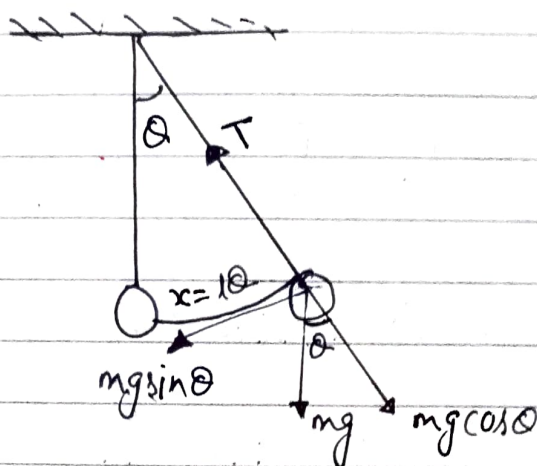 θ
T
x=lθ
θ
mgsinθ
mg
mgcosθ